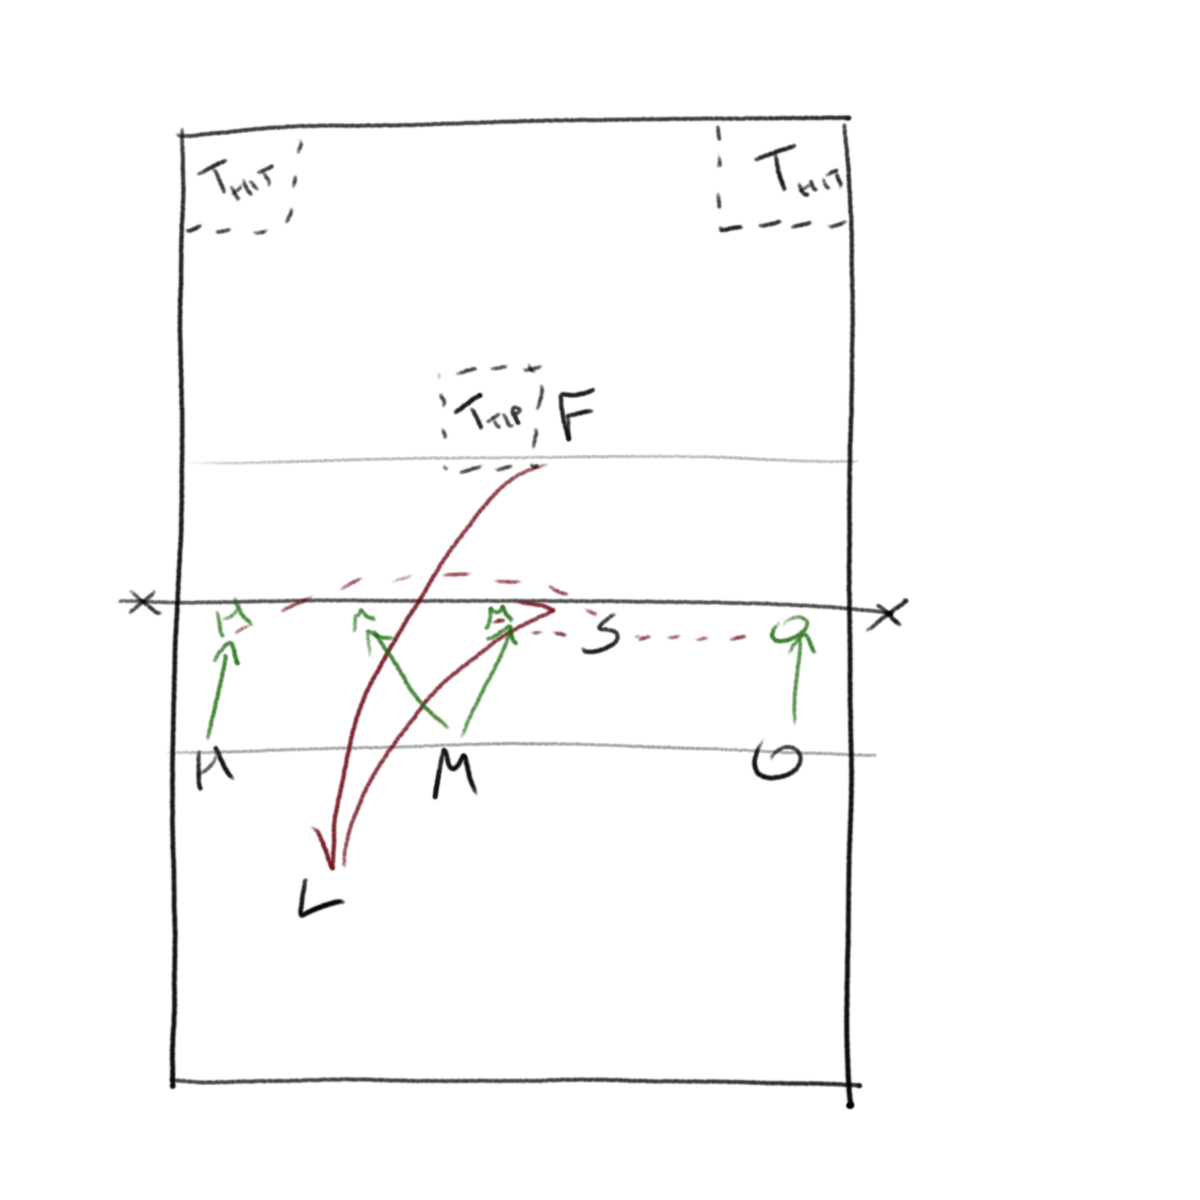 THIT THIT
TTIP F
X H M S O X
H M O
L